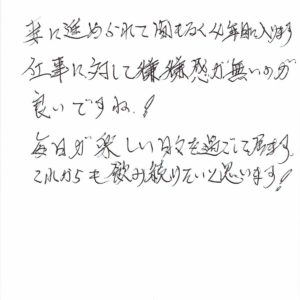 妻に進められて間もなく4年目に入ります
仕事に対して嫌様感が無いのが
良いですね!
毎日が楽しい日々を過ごして居ます。
これからも飲み続けたいと思います!